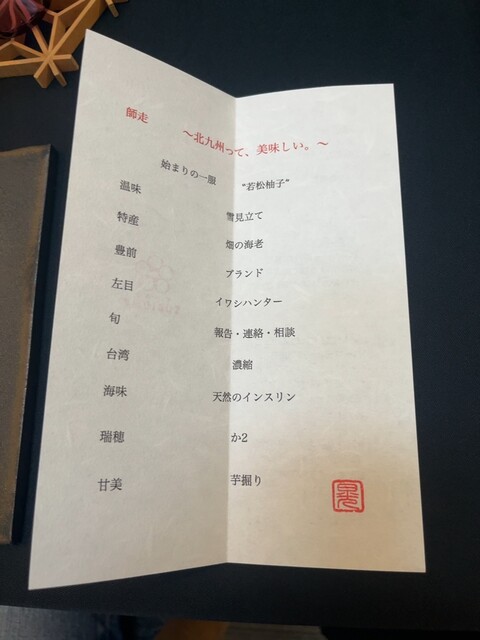 師走
〜北九州って、美味しい。〜
始まりの一服 “若松柚子”
温味 雪見立て
特産 畑の海老
豊前 ブランド
左目 イワシハンター
旬 報告・連絡・相談
台湾 濃縮
海味 天然のインスリン
瑞穂 か2
甘美 芋掘り